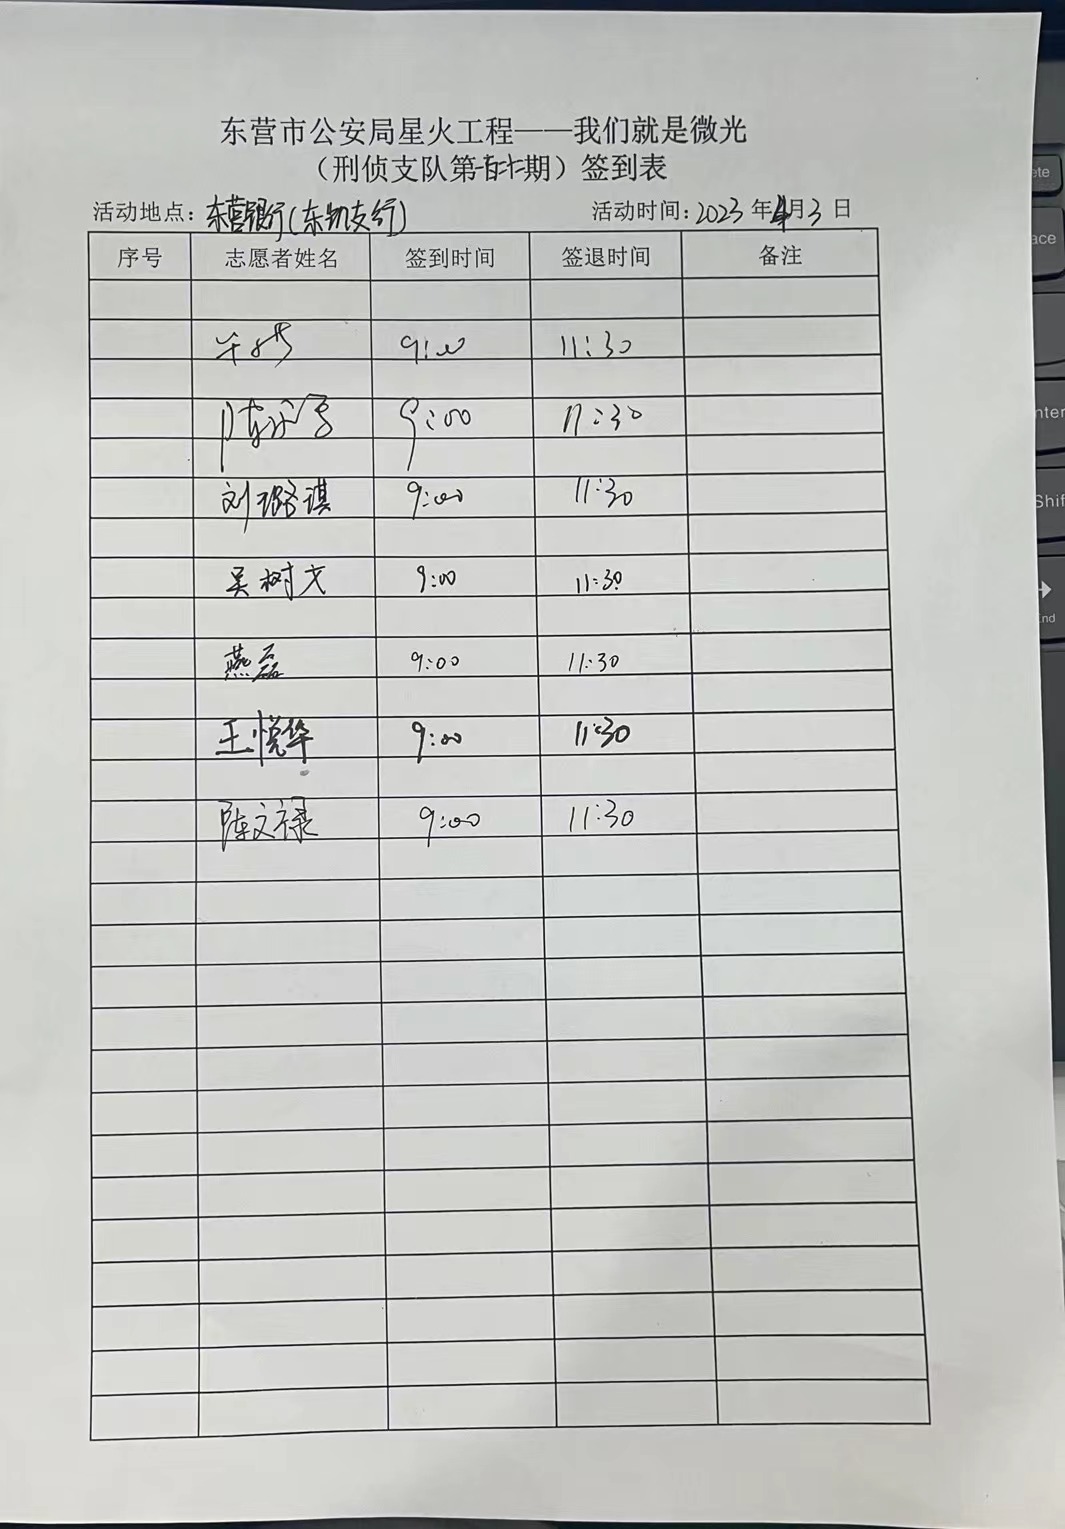 东营市公安局星火工程——我们就是微光
（刑侦支队第 期）签到表
活动地点：东营银行(东凯支行) 活动时间：2023年4月3日
序号 志愿者姓名 签到时间 签退时间 备注
9:00 11:30
陈 9:00 11:30
刘璐琪 9:00 11:30
吴树文 9:00 11:30
燕磊 9:00 11:30
王悦华 9:00 11:30
陈文禄 9:00 11:30